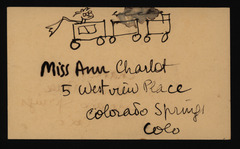 Miss Ann Charlot
5 West view Place
Colorado Springs
Colo